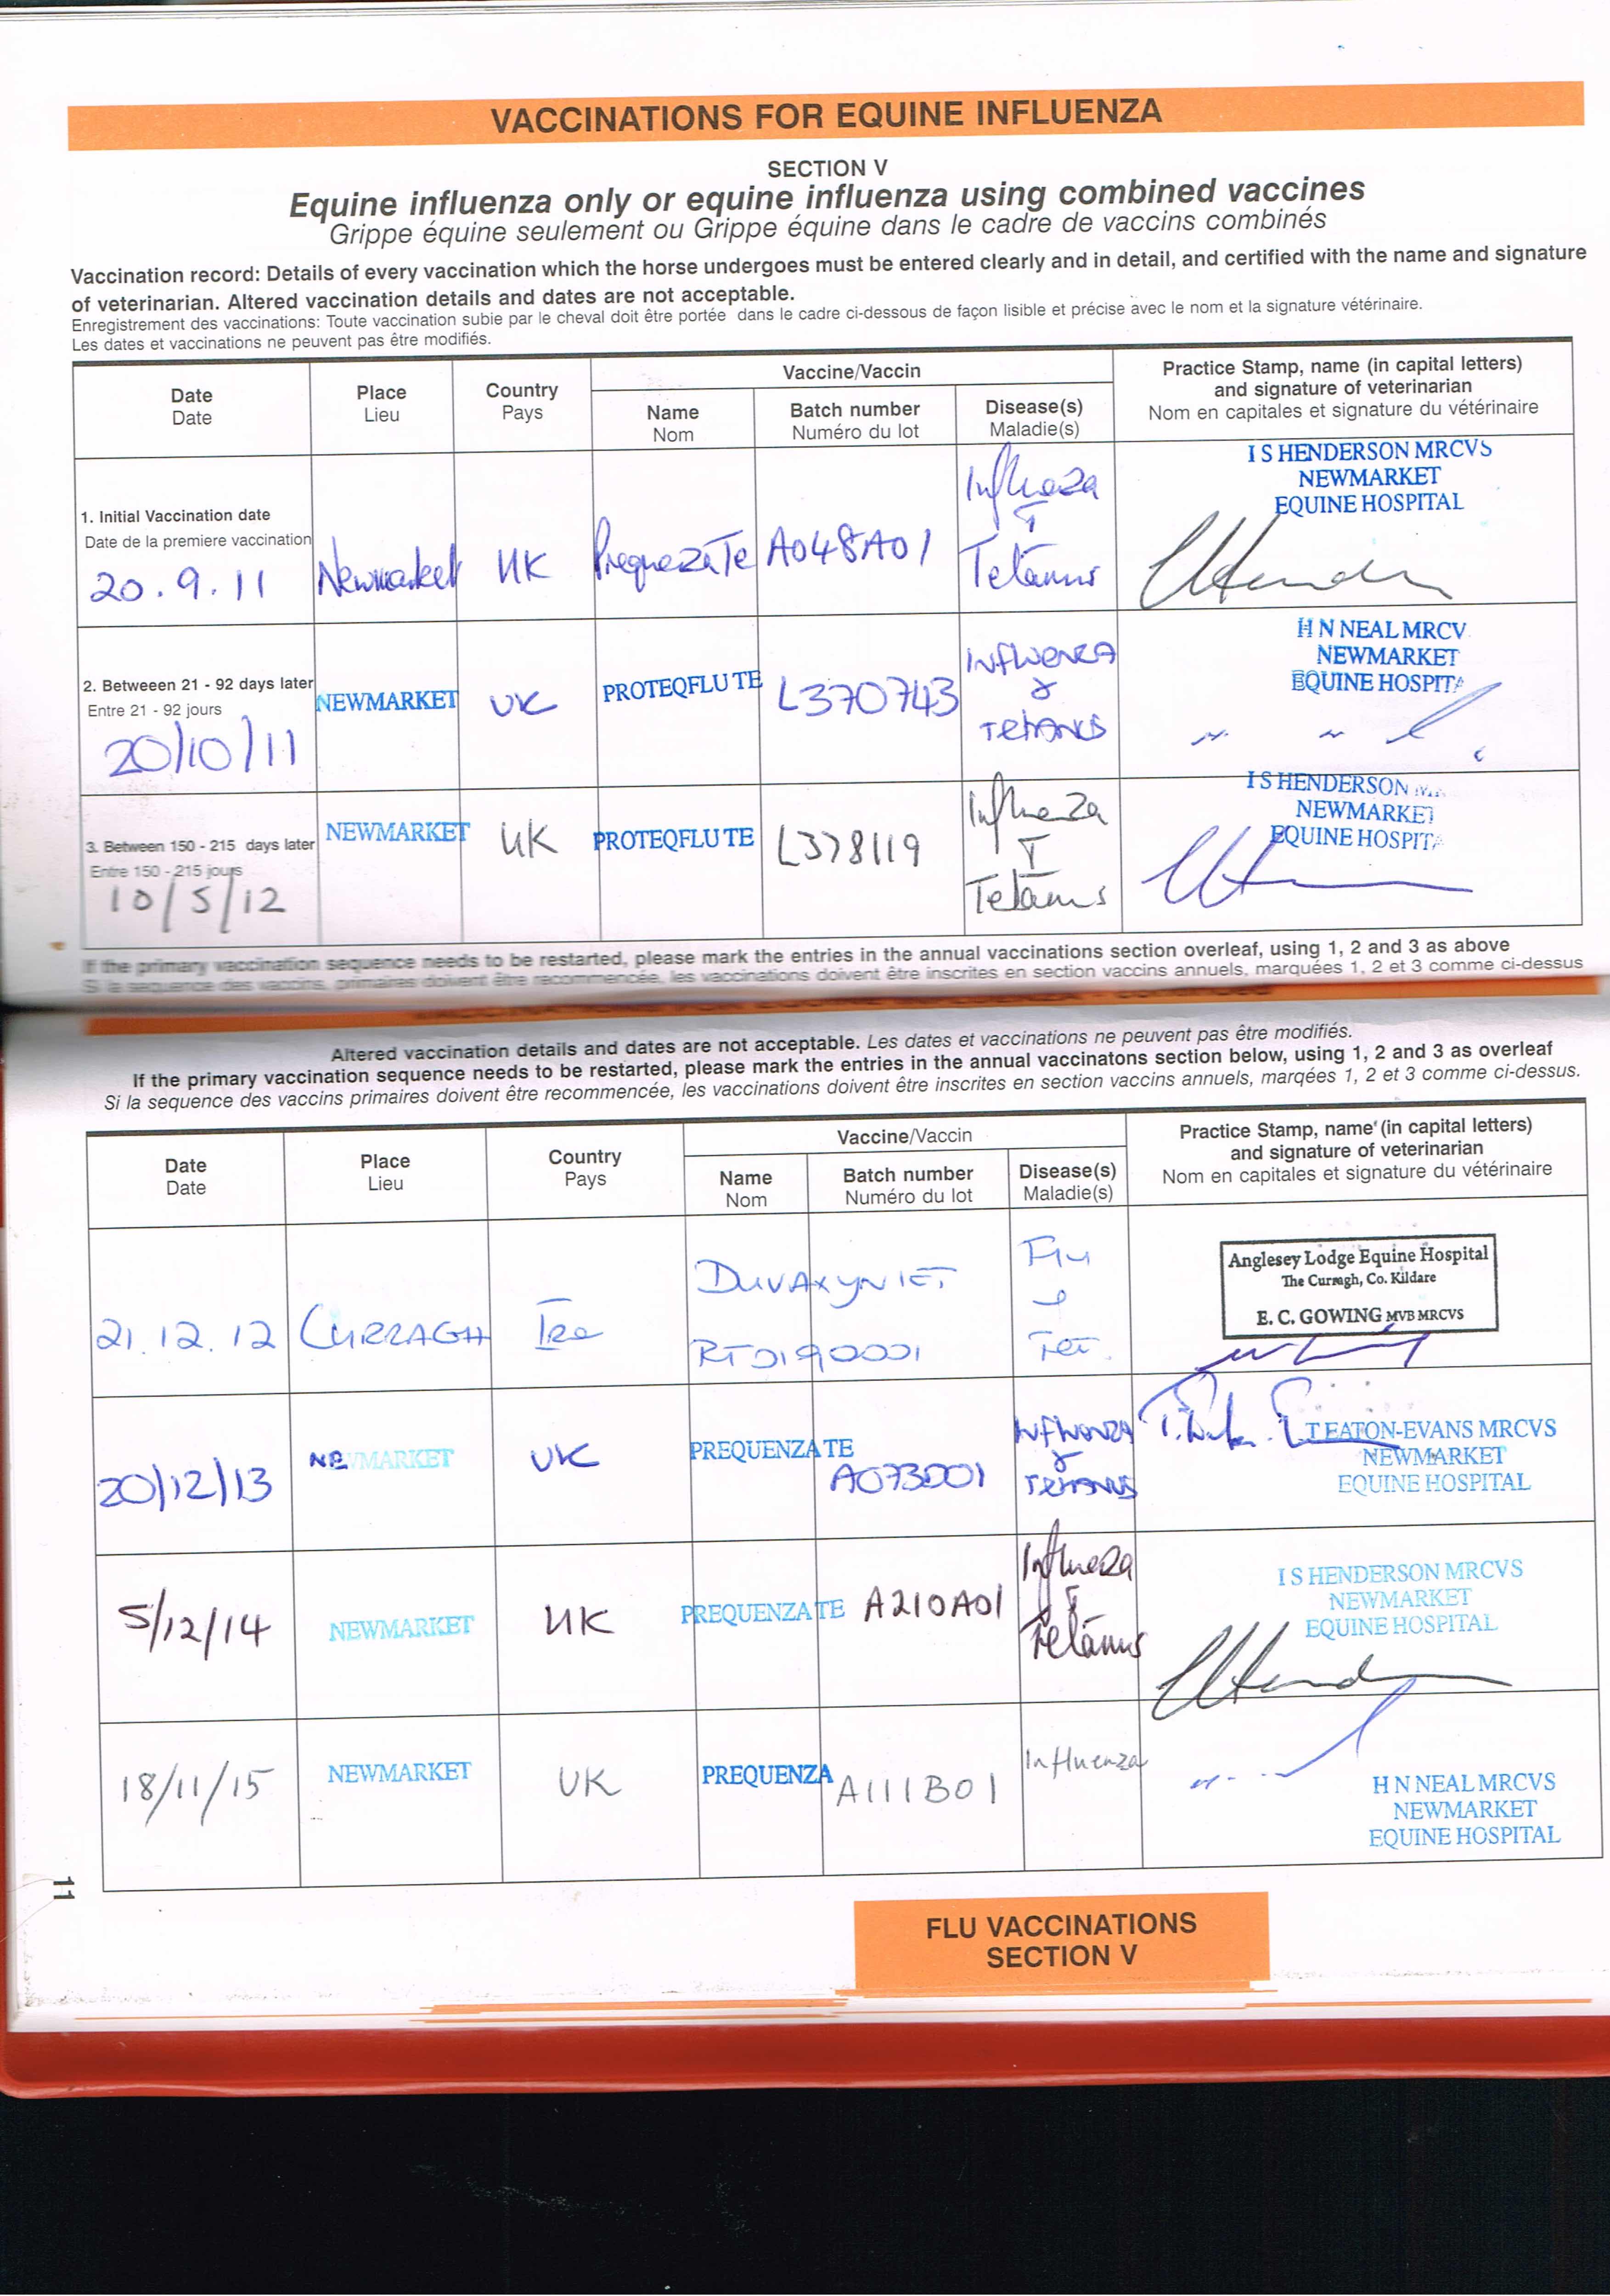 VACCINATIONS FOR EQUINE INFLUENZA
SECTION V
Equine influenza only or equine influenza using combined vaccines
Grippe équine seulement ou Grippe équine dans le cadre de vaccins combinés
Vaccination record: Details of every vaccination which the horse undergoes must be entered clearly and in detail, and certified with the name and signature
of veterinarian. Altered vaccination details and dates are not acceptable.
Enregistrement des vaccinations: Toute vaccination subie par le cheval doit être portée dans le cadre ci-dessous de façon lisible et précise avec le nom et la signature vétérinaire.
Les dates et vaccinations ne peuvent pas être modifiés.
Date
Date
Place
Lieu
Country
Pays
Vaccine/Vaccin
Name
Nom
Batch number
Numéro du lot
Disease(s)
Maladie(s)
Practice Stamp, name (in capital letters)
and signature of veterinarian
Nom en capitales et signature du vétérinaire
1. Initial Vaccination date
Date de la premiere vaccination
20.9.11
Newmarket
UK
PrequezaTe
A048A01
Influeza
T
Tetanus
I S HENDERSON MRCVS
NEWMARKET
EQUINE HOSPITAL
2. Betweeen 21 - 92 days later
Entre 21 - 92 jours
20/10/11
NEWMARKET
UK
PROTEQFLU TE
L370743
INFLUENZA
&
TETANUS
H N NEAL MRCV
NEWMARKET
EQUINE HOSPITA
3. Between 150 - 215 days later
Entre 150 - 215 jours
10/5/12
NEWMARKET
UK
PROTEQFLU TE
L378119
Influeza
T
Tetanus
I S HENDERSON
NEWMARKET
EQUINE HOSPITA
If the primary vaccination sequence needs to be restarted, please mark the entries in the annual vaccinations section overleaf, using 1, 2 and 3 as above
Si la sequence des vaccins, primaires doivent être recommencée, les vaccinations doivent être inscrites en section vaccins annuels, marquées 1, 2 et 3 comme ci-dessus
Altered vaccination details and dates are not acceptable. Les dates et vaccinations ne peuvent pas être modifiés.
If the primary vaccination sequence needs to be restarted, please mark the entries in the annual vaccinatons section below, using 1, 2 and 3 as overleaf
Si la sequence des vaccins primaires doivent être recommencée, les vaccinations doivent être inscrites en section vaccins annuels, marqées 1, 2 et 3 comme ci-dessus.
Date
Date
Place
Lieu
Country
Pays
Vaccine/Vaccin
Name
Nom
Batch number
Numéro du lot
Disease(s)
Maladie(s)
Practice Stamp, name (in capital letters)
and signature of veterinarian
Nom en capitales et signature du vétérinaire
21.12.12
CURRAGH
Ire
DUVAXYN IET
RT0190001
Flu
&
Tet.
Anglesey Lodge Equine Hospital
The Curragh, Co. Kildare
E. C. GOWING MVB MRCVS
20/12/13
NEWMARKET
UK
PREQUENZA TE
A073D01
INFLUENZA
&
TETANUS
T EATON-EVANS MRCVS
NEWMARKET
EQUINE HOSPITAL
5/12/14
NEWMARKET
UK
PREQUENZA TE
A210A01
Influeza
T
Tetanus
I S HENDERSON MRCVS
NEWMARKET
EQUINE HOSPITAL
18/11/15
NEWMARKET
UK
PREQUENZA
A111B01
Influenza
H N NEAL MRCVS
NEWMARKET
EQUINE HOSPITAL
11
FLU VACCINATIONS
SECTION V